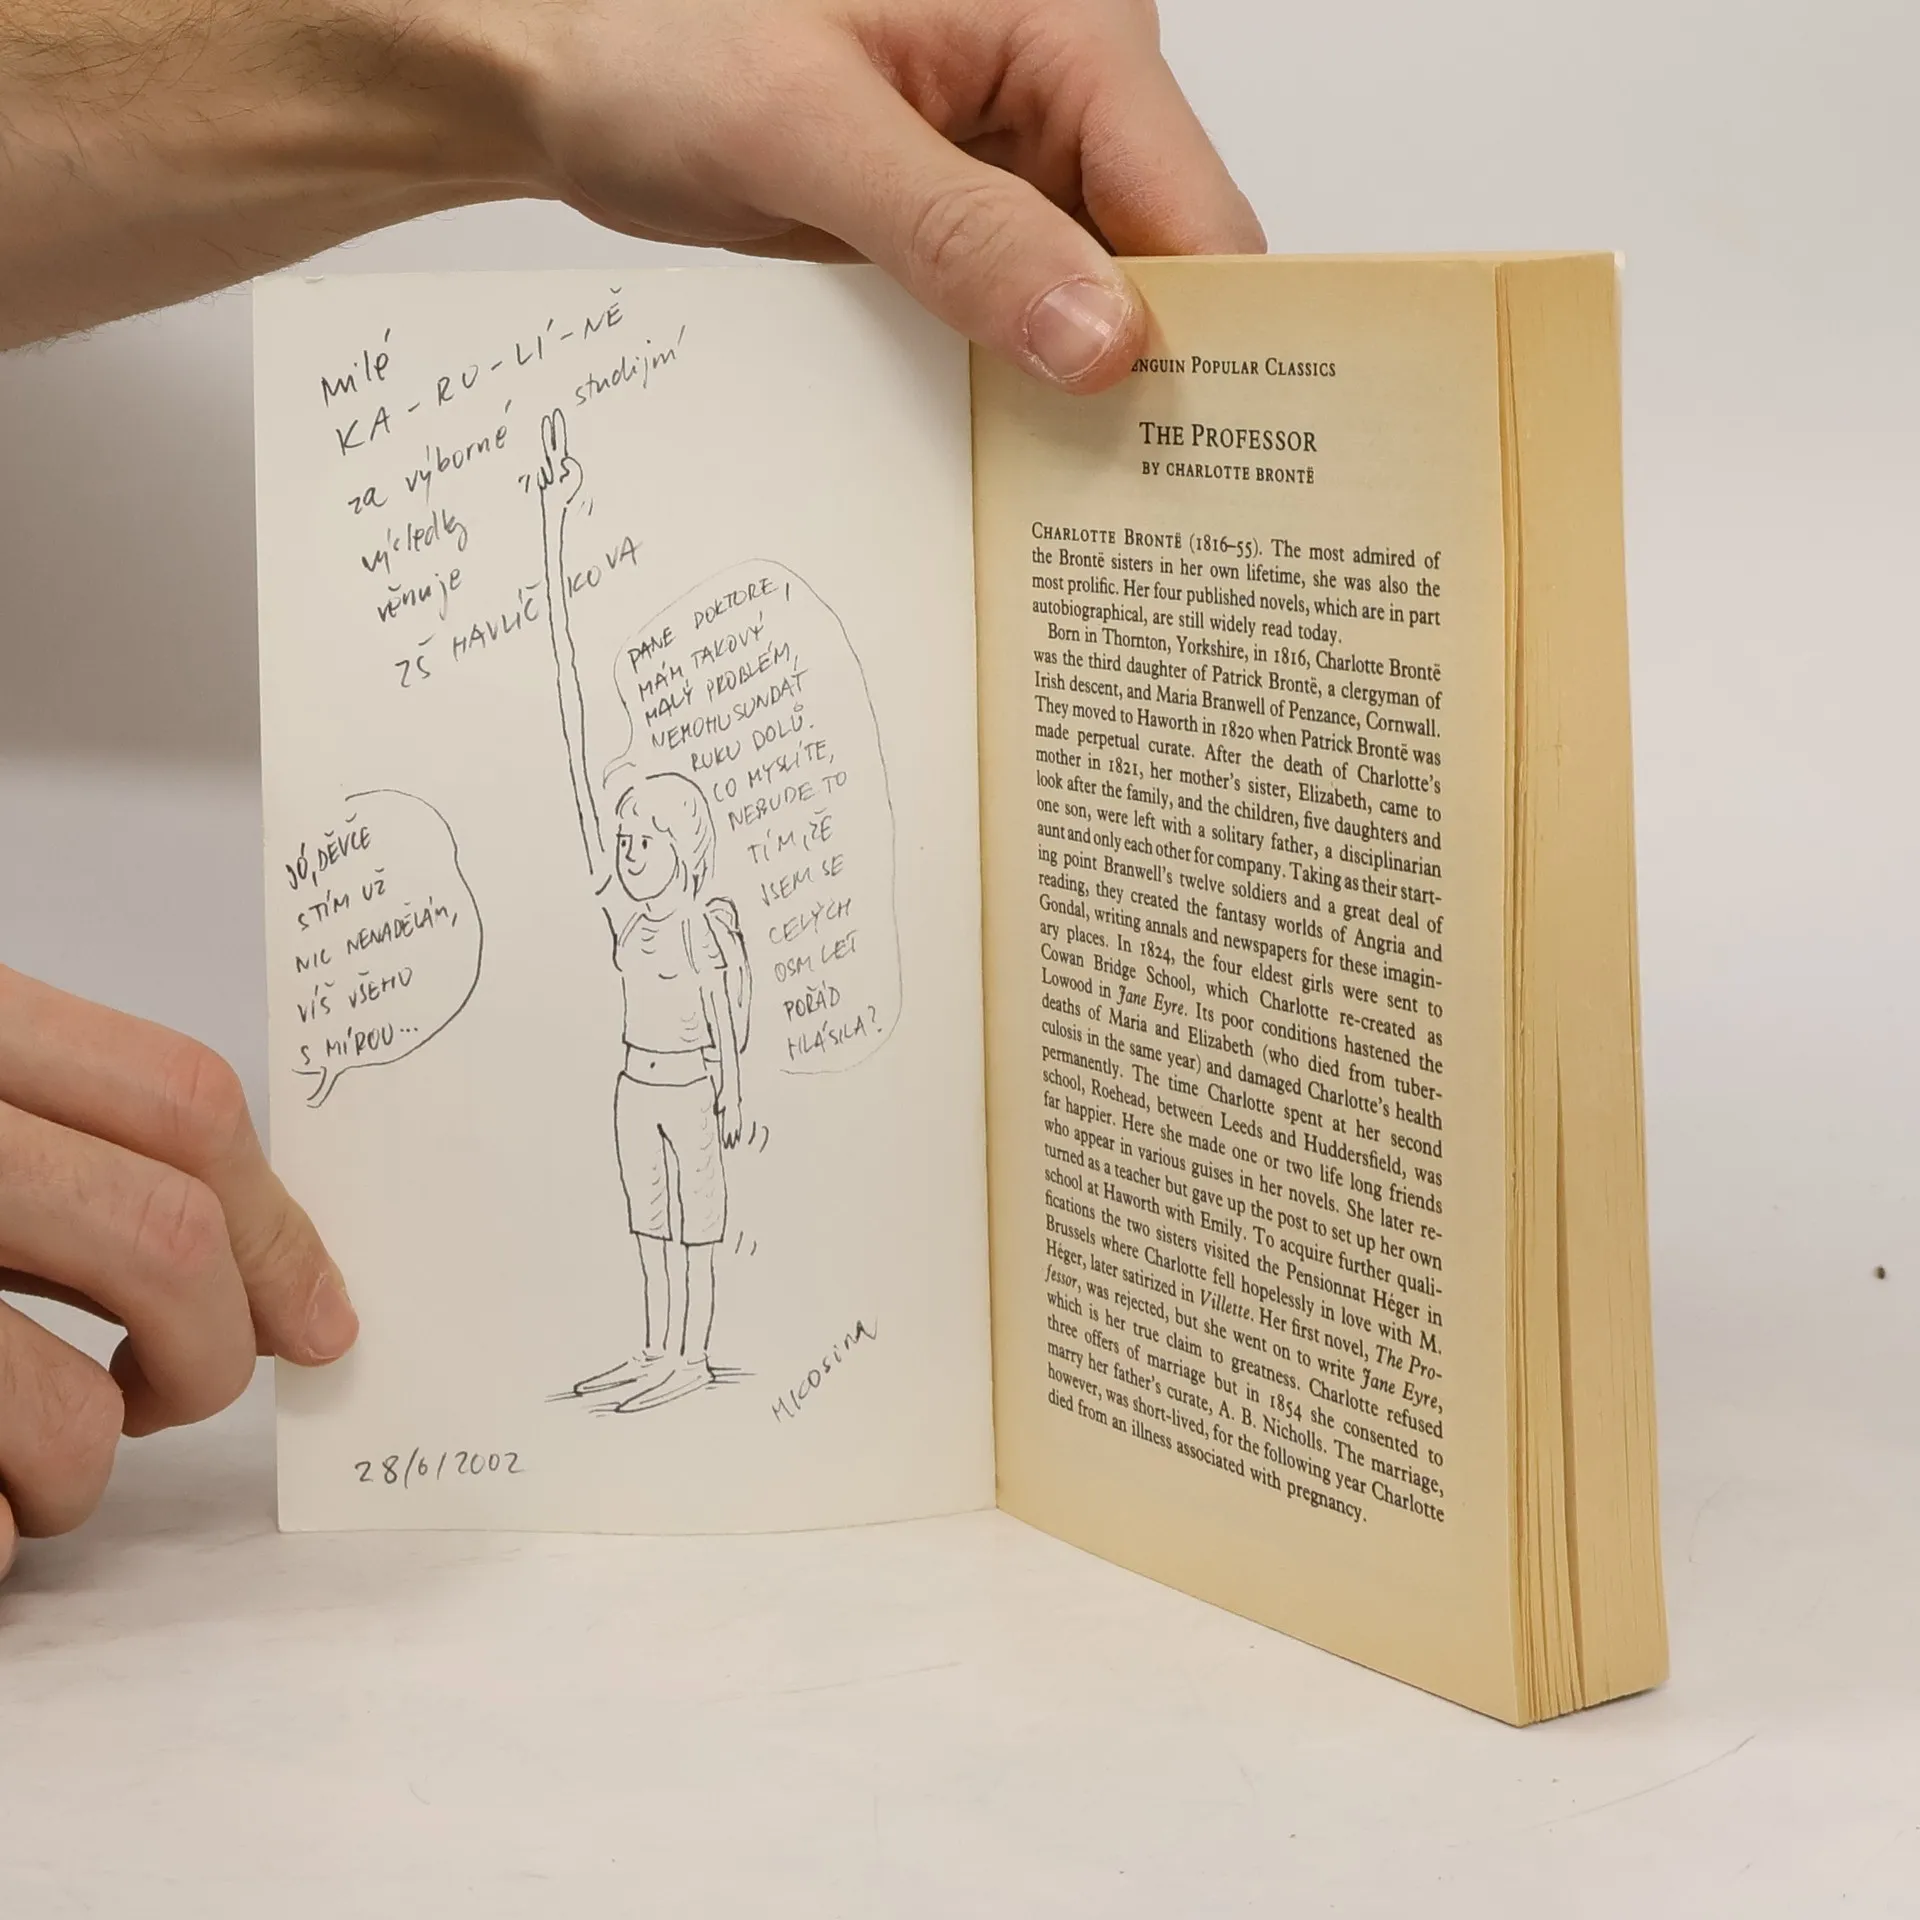 Milé
KA-RU-LÍ-NĚ
za výborné studijní
výsledky
věnuje
ZŠ HAVLÍČKOVA
PANE DOKTORE,
MÁM TAKOVÝ
MALÝ PROBLÉM,
NEMOHU SUNDAT
RUKU DOLŮ.
CO MYSLÍTE,
NEBUDE TO
TÍM, ŽE
JSEM SE
CELÝCH
OSM LET
POŘÁD
HLÁSILA?
JÓ, DĚVČE
S TÍM UŽ
NIC NENADĚLÁM,
VÍŠ VŠEHO
S MÍROU...
28/6/2002
ENGUIN POPULAR CLASSICS
THE PROFESSOR
BY CHARLOTTE BRONTË
CHARLOTTE BRONTË (1816–55). The most admired of
the Brontë sisters in her own lifetime, she was also the
most prolific. Her four published novels, which are in part
autobiographical, are still widely read today.
Born in Thornton, Yorkshire, in 1816, Charlotte Brontë
was the third daughter of Patrick Brontë, a clergyman of
Irish descent, and Maria Branwell of Penzance, Cornwall.
They moved to Haworth in 1820 when Patrick Brontë was
made perpetual curate. After the death of Charlotte's
mother in 1821, her mother's sister, Elizabeth, came to
look after the family, and the children, five daughters and
one son, were left with a solitary father, a disciplinarian
aunt and only each other for company. Taking as their start-
ing point Branwell's twelve soldiers and a great deal of
reading, they created the fantasy worlds of Angria and
Gondal, writing annals and newspapers for these imagin-
ary places. In 1824, the four eldest girls were sent to
Cowan Bridge School, which Charlotte re-created as
Lowood in Jane Eyre. Its poor conditions hastened the
deaths of Maria and Elizabeth (who died from tuber-
culosis in the same year) and damaged Charlotte's health
permanently. The time Charlotte spent at her second
school, Roehead, between Leeds and Huddersfield, was
far happier. Here she made one or two life long friends
who appear in various guises in her novels. She later re-
turned as a teacher but gave up the post to set up her own
school at Haworth with Emily. To acquire further quali-
fications the two sisters visited the Pensionnat Héger in
Brussels where Charlotte fell hopelessly in love with M.
Héger, later satirized in Villette. Her first novel, The Pro-
fessor, was rejected, but she went on to write Jane Eyre,
which is her true claim to greatness. Charlotte refused
three offers of marriage but in 1854 she consented to
marry her father's curate, A. B. Nicholls. The marriage,
however, was short-lived, for the following year Charlotte
died from an illness associated with pregnancy.